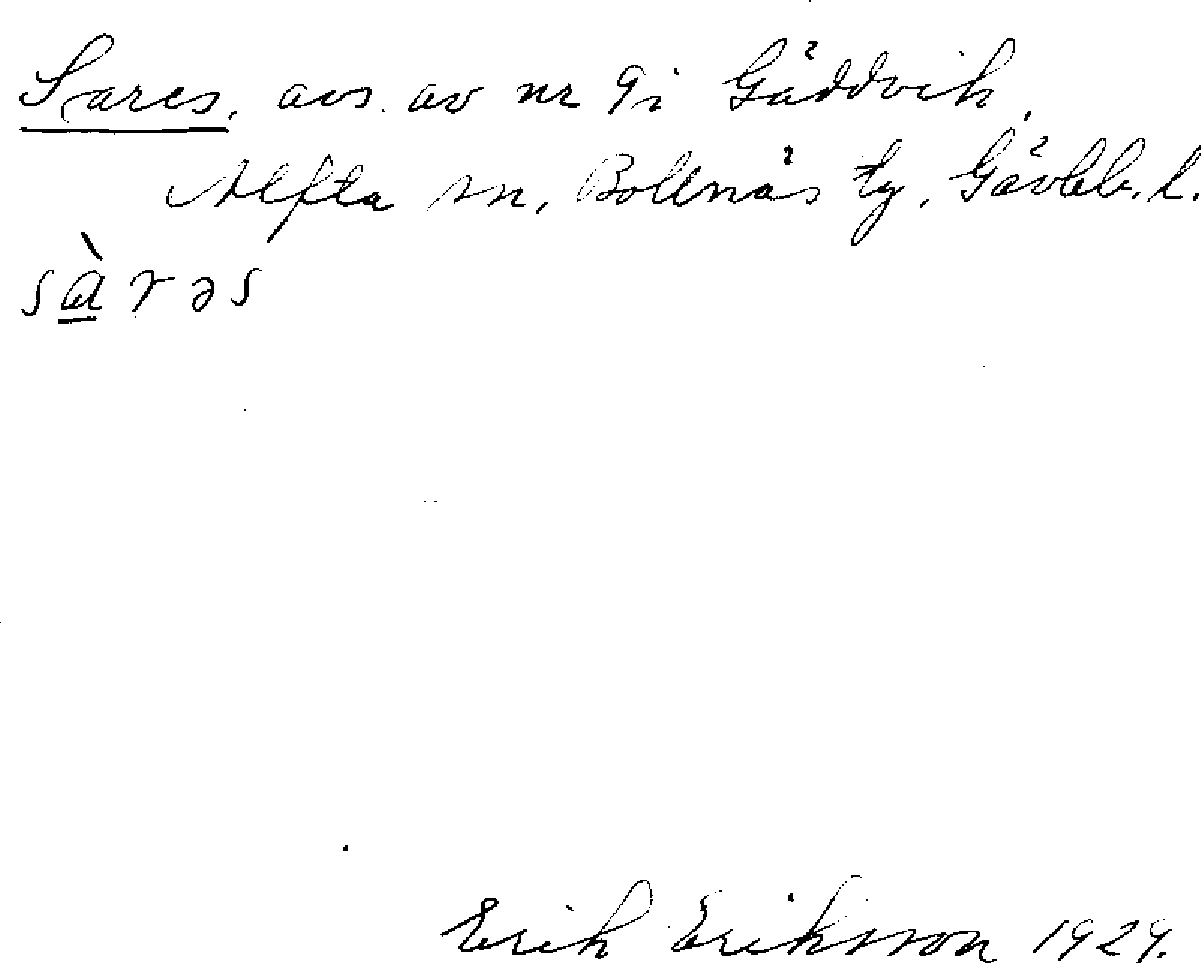 Sares, avs. av nr 9 i Gäddvik,
Alfta sn, Bollnäs tg, Gävleb. l.
sàrəs
Erik Eriksson 1929.